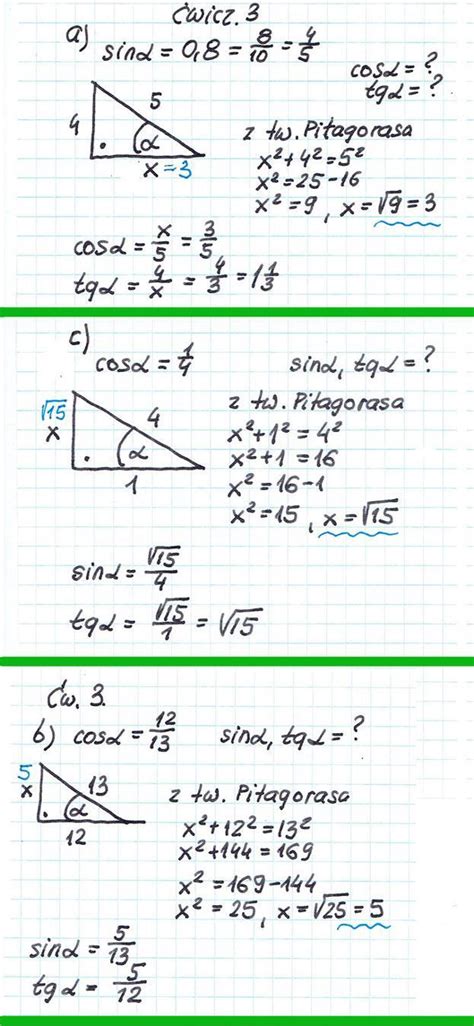 Ćwicz. 3
a) sinα = 0,8 = 8/10 = 4/5
cosα = ?
tgα = ?
4
5
α
x = 3
z tw. Pitagorasa
x² + 4² = 5²
x² = 25 - 16
x² = 9, x = √9 = 3
cosα = x/5 = 3/5
tgα = 4/x = 4/3 = 1 1/3
c)
cosα = 1/4
sinα, tgα = ?
√15
x
4
α
1
z tw. Pitagorasa
x² + 1² = 4²
x² + 1 = 16
x² = 16 - 1
x² = 15, x = √15
sinα = √15/4
tgα = √15/1 = √15
Ćw. 3.
b) cosα = 12/13
sinα, tgα = ?
5
x
13
α
12
z tw. Pitagorasa
x² + 12² = 13²
x² + 144 = 169
x² = 169 - 144
x² = 25, x = √25 = 5
sinα = 5/13
tgα = 5/12